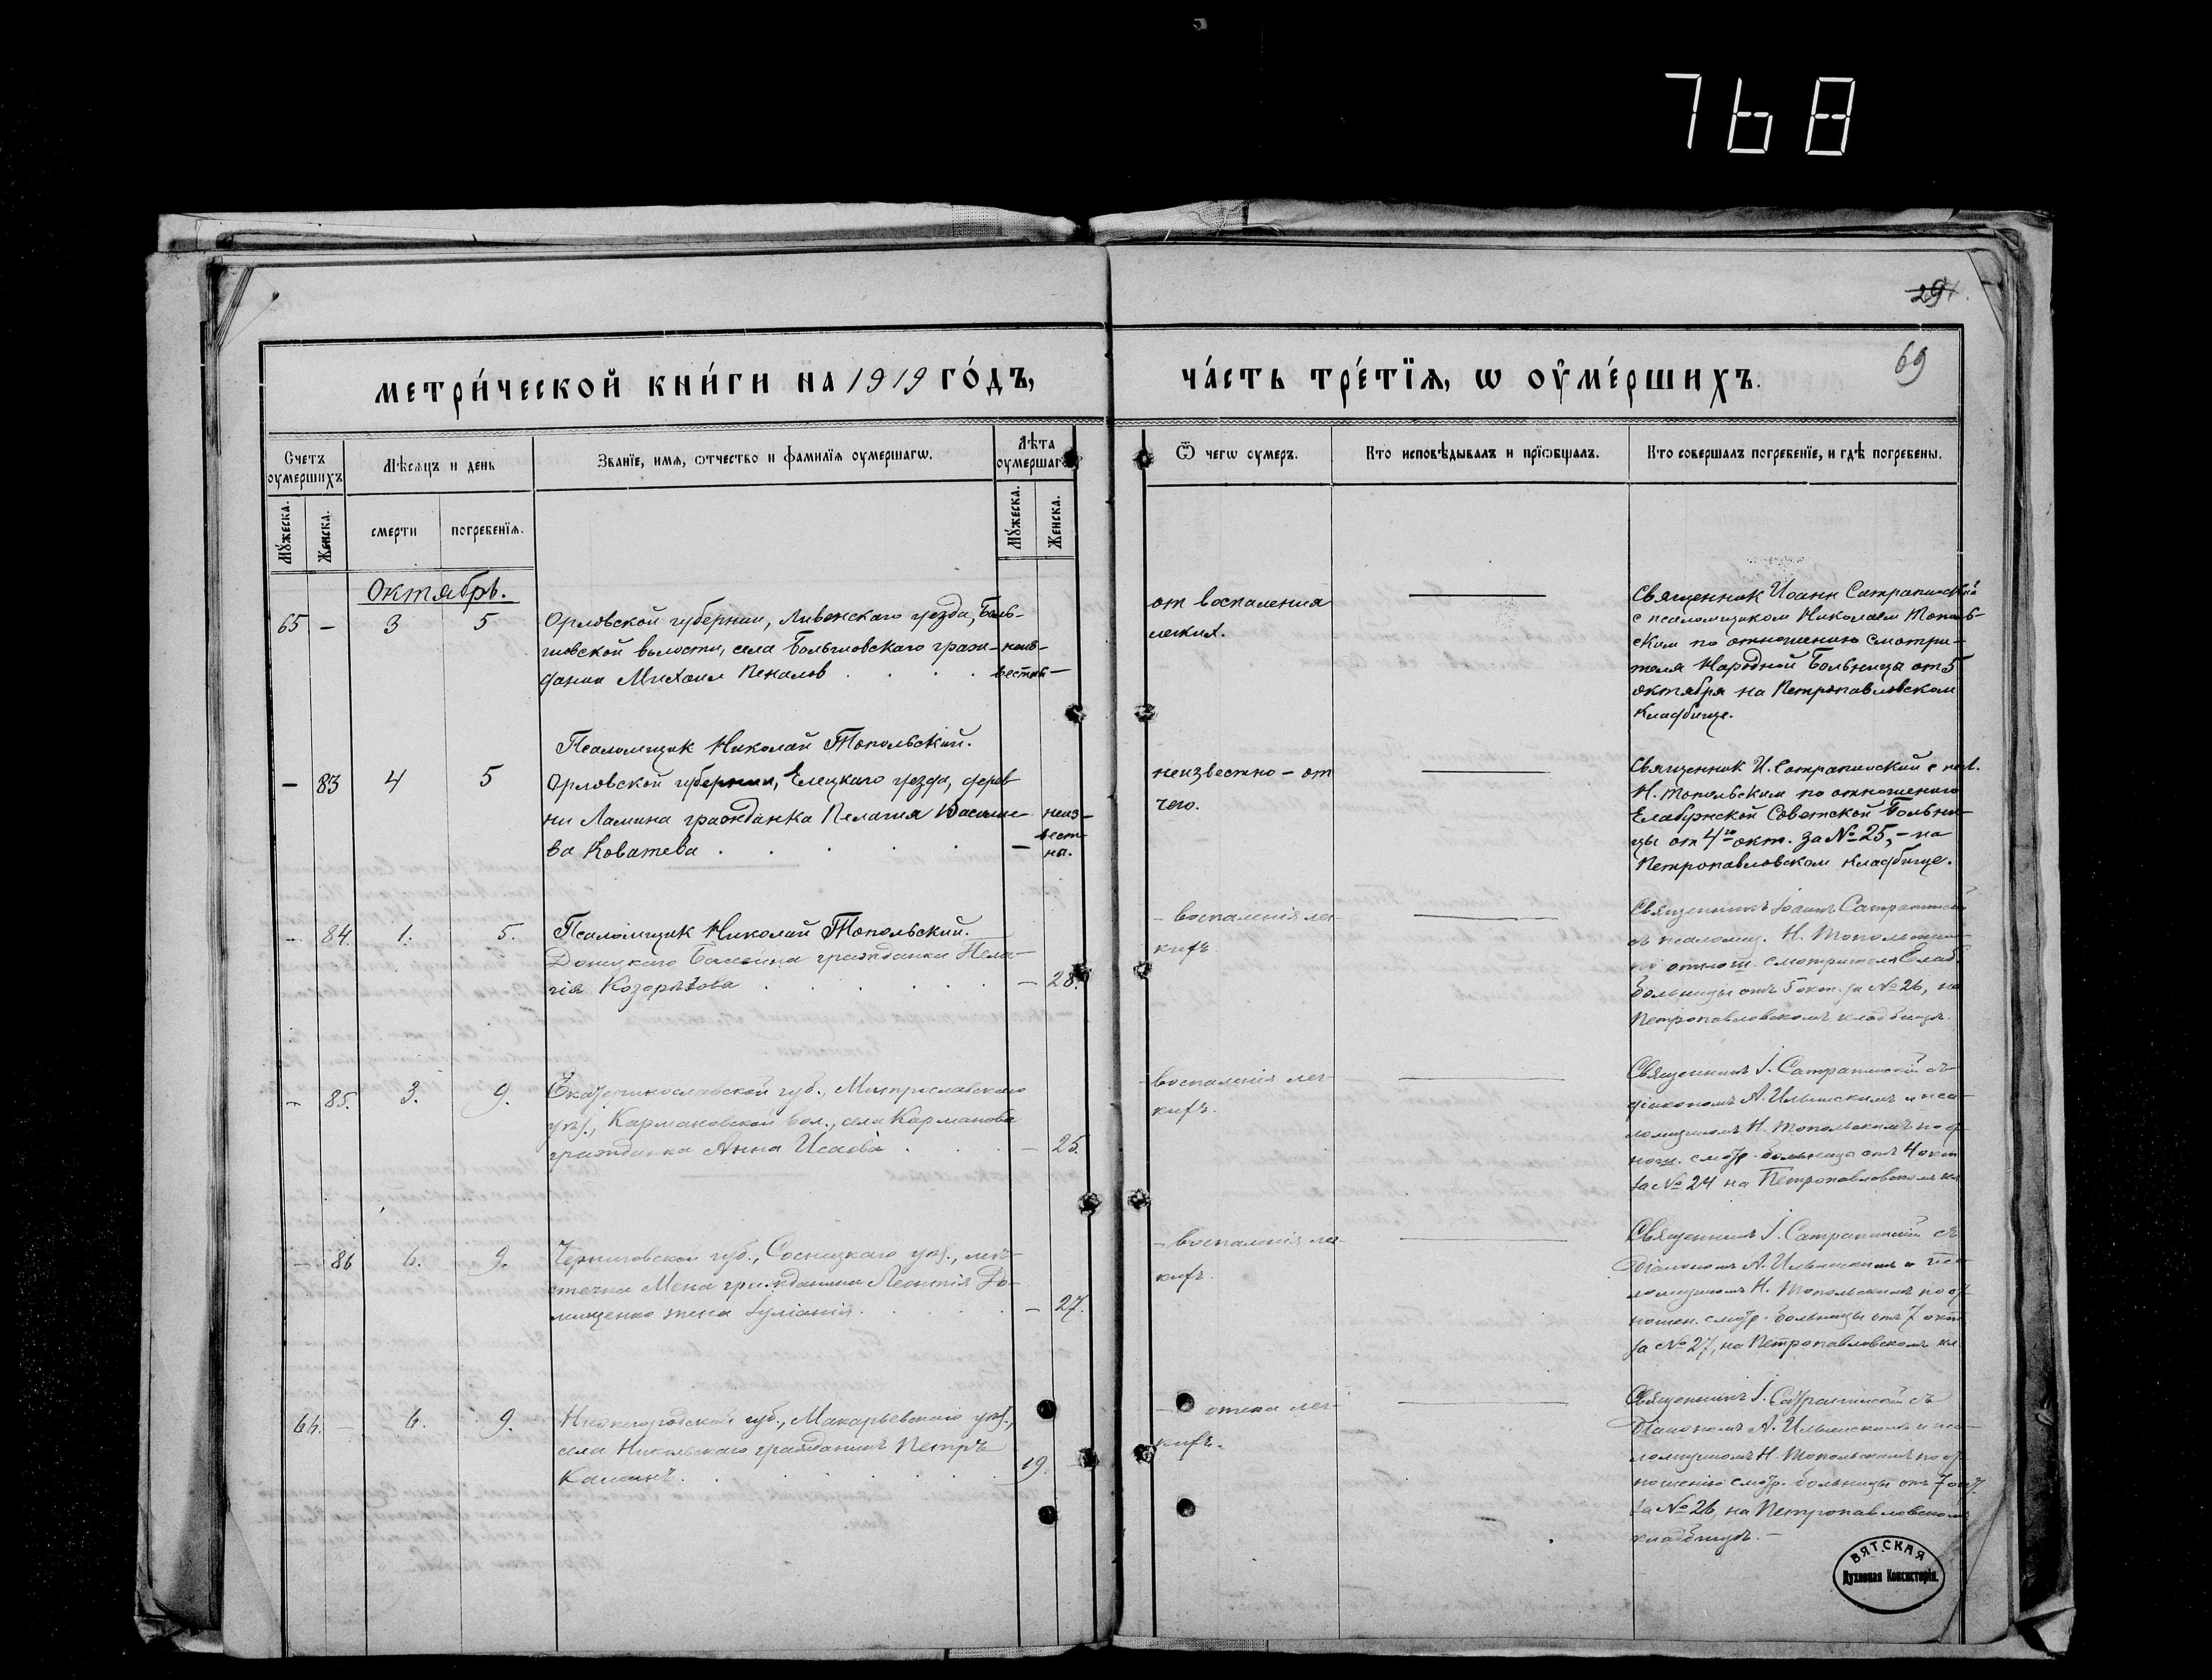 768
29
69
МЕТРИ́ЧЕСКОЙ КНИ́ГИ НА 1919 ГО́ДЪ,
ЧА́СТЬ ТРЕ́ТЇЯ, Ѡ ОУ҆МЕ́РШИХЪ.
Счетъ оумершихъ
Мѣсяцъ и день
Званїе, имя, ѡтчество и фамилїя оумершагѡ.
Лѣта оумершагѡ
Ѿ чегѡ оумеръ.
Кто исповѣдывалъ и прїѡбщалъ.
Кто совершалъ погребенїе, и гдѣ погребены.
Мужеска.
Женска.
смерти
погребенїя.
Мужеска.
Женска.
Октябрь.
65 — 3 5
Орловской губернии, Ливенскаго уезда,
волости, села граж-
данин Михаил
неиз-
вестны —
от воспаления
легких.
Священник Иоанн Сатрапинский
с псаломщиком Николаем Тополь-
ским по отношению смотри-
теля Народной Больницы от 5
октября на Петропавловском
кладбище.
Псаломщик Николай Топольский.
— 83 4 5
Орловской губернии, Елецкаго уезда, дерев
ни Ламина гражданка Пелагия Василье
ва
— неиз-
вест-
ны.
неизвестно — от
чего.
Священник И. Сатрапинский с псал.
Н. Топольским по отношению
Елабужской Советской Больни-
цы от 4го окт. за № 25, — на
Петропавловском кладбище.
Псаломщик Николай Топольский.
— 84. 1. 5.
Донецкаго гражданка Пела-
гія
— 28.
— воспаленія ле-
кихъ.
Священникъ Іоаннъ Сатрапинскій
съ псаломщ. Н. Топольским
по отнош. смотрителя Елаб.
больницы отъ 5 окт. за № 26, на
Петропавловскомъ кладбищѣ.
— 85. 3. 9.
Екатеринославской губ.,
уѣз., Кармановской вол., села Карманова
гражданка Анна Исаева
— 25.
воспаленія лег-
кихъ.
Священникъ І. Сатрапинскій съ
діакономъ А. Ильинскимъ и пса-
ломщикомъ Н. Топольскимъ по от
нош. смотр. больницы отъ 4 окт
за № 24 на Петропавловскомъ кл
— 86 6. 9.
Черниговской губ., Сосницкаго уѣз., мѣ-
стечка Мена гражданина Леонтія До-
мищенко жена Іуліанія
— 27.
— воспаленія ле-
кихъ.
Священникъ І. Сатрапинскій съ
Діакономъ А. Ильинскимъ и пса
ломщикомъ Н. Топольскимъ по от
ношен. смотр. больницы отъ 7 окт
за № 27, на Петропавловскомъ кл
66. — 6. 9.
Нижегородской губ., Макарьевскаго уѣз.,
села Никольскаго гражданинъ Петръ
19.
— отека лег-
кихъ.
Священникъ І. Сатрапинскій съ
Діакономъ А. Ильинскимъ и пса-
ломщикомъ Н. Топольскимъ по от
ношенію смотр. больницы отъ 7 окт.
за № 26, на Петропавловскомъ
кладбищѣ. —
ВЯТСКАЯ
Духовная Консисторія.